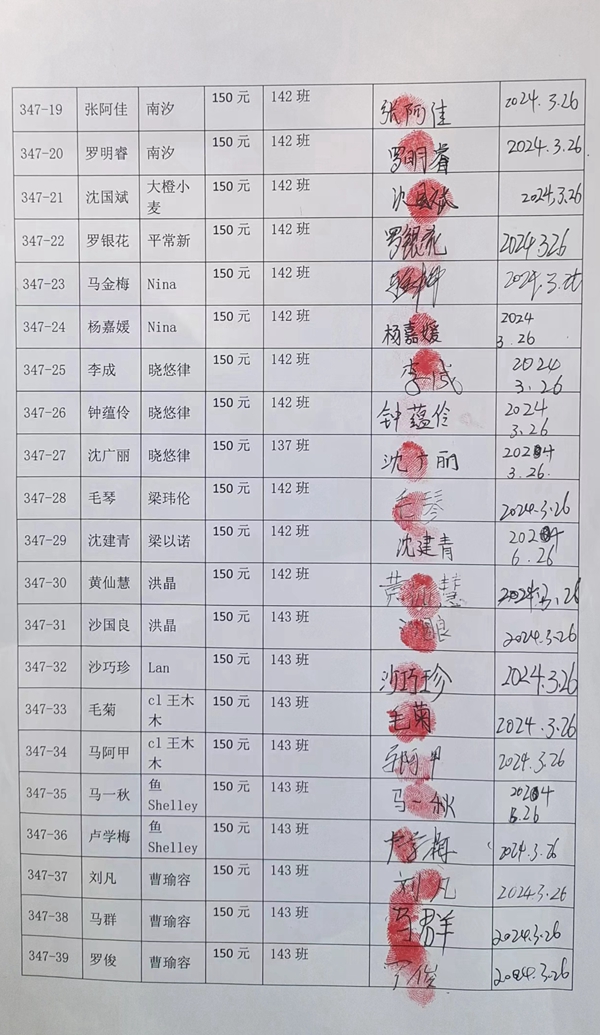 347-19 张阿佳 南汐 150 元 142 班 张阿佳 2024.3.26
347-20 罗明睿 南汐 150 元 142 班 罗明睿 2024.3.26
347-21 沈国斌 大橙小麦 150 元 142 班 沈国斌 2024.3.26
347-22 罗银花 平常新 150 元 142 班 罗银花 2024326
347-23 马金梅 Nina 150 元 142 班 2024.3.26
347-24 杨嘉媛 Nina 150 元 142 班 杨嘉媛 2024 3.26
347-25 李成 晓悠律 150 元 142 班 李成 2024 3.26
347-26 钟蕴伶 晓悠律 150 元 142 班 钟蕴伶 2024 3.26
347-27 沈广丽 晓悠律 150 元 137 班 沈广丽 2024 3.26.
347-28 毛琴 梁玮伦 150 元 142 班 毛琴 2024.3.26
347-29 沈建青 梁以诺 150 元 142 班 沈建青 2024 6.26
347-30 黄仙慧 洪晶 150 元 142 班 黄仙慧 2024.3.26
347-31 沙国良 洪晶 150 元 143 班 2024.3.26
347-32 沙巧珍 Lan 150 元 143 班 沙巧珍 2024.3.26
347-33 毛菊 cl 王木木 150 元 143 班 毛菊 2024.3.26
347-34 马阿甲 cl 王木木 150 元 143 班 马阿甲 2024.3.26
347-35 马一秋 鱼 Shelley 150 元 143 班 马一秋 2024 .26
347-36 卢学梅 鱼 Shelley 150 元 143 班 卢学梅 2024.3.26
347-37 刘凡 曹瑜容 150 元 143 班 刘凡 2024.3.26
347-38 马群 曹瑜容 150 元 143 班 马群 2024.3.26
347-39 罗俊 曹瑜容 150 元 143 班 俊 2024.3.26